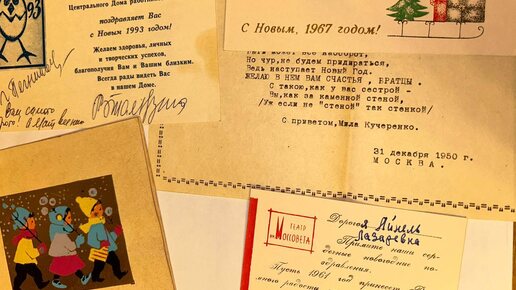 93
Центрального Дома работник
поздравляет Вас
с Новым 1993 годом!
Желаем здоровья, личных
и творческих успехов,
благополучия Вам и Вашим близким.
Всегда рады видеть Вас
в нашем Доме.
Вам самого
С Новым, 1967 годом!
может все наоборот,
Но чур, не будем придираться,
Ведь наступает Новый Год.
ЖЕЛАЮ В НЕМ ВАМ СЧАСТЬЯ , БРАТЦЫ .
С такою, как у вас сестрой -
Вы, как за каменной стеной,
/Уж если не "стеной" так стенкой/
С приветом, Мила Кучеренко.
31 декабря 1950 г.
М О С К В А .
ТЕАТР
Моссовета
Дорогая Айнель
Лазаревна
Примите наши сер-
дечные новогодние по-
здравления.
Пусть 1961 год принесет В
много радости